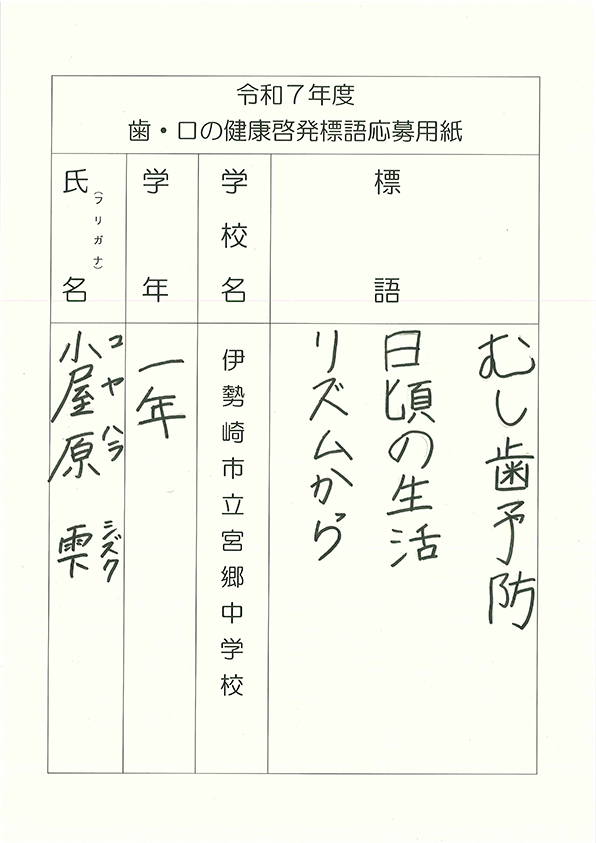 令和７年度
歯・口の健康啓発標語応募用紙
標語
むし歯予防
日頃の生活
リズムから
学校名
伊勢崎市立宮郷中学校
学年
一年
氏名
（フリガナ）
コヤハラ シズク
小屋原 雫